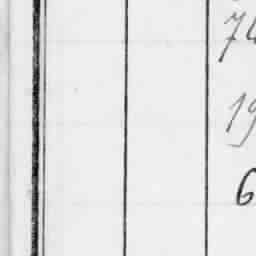 74
19
6